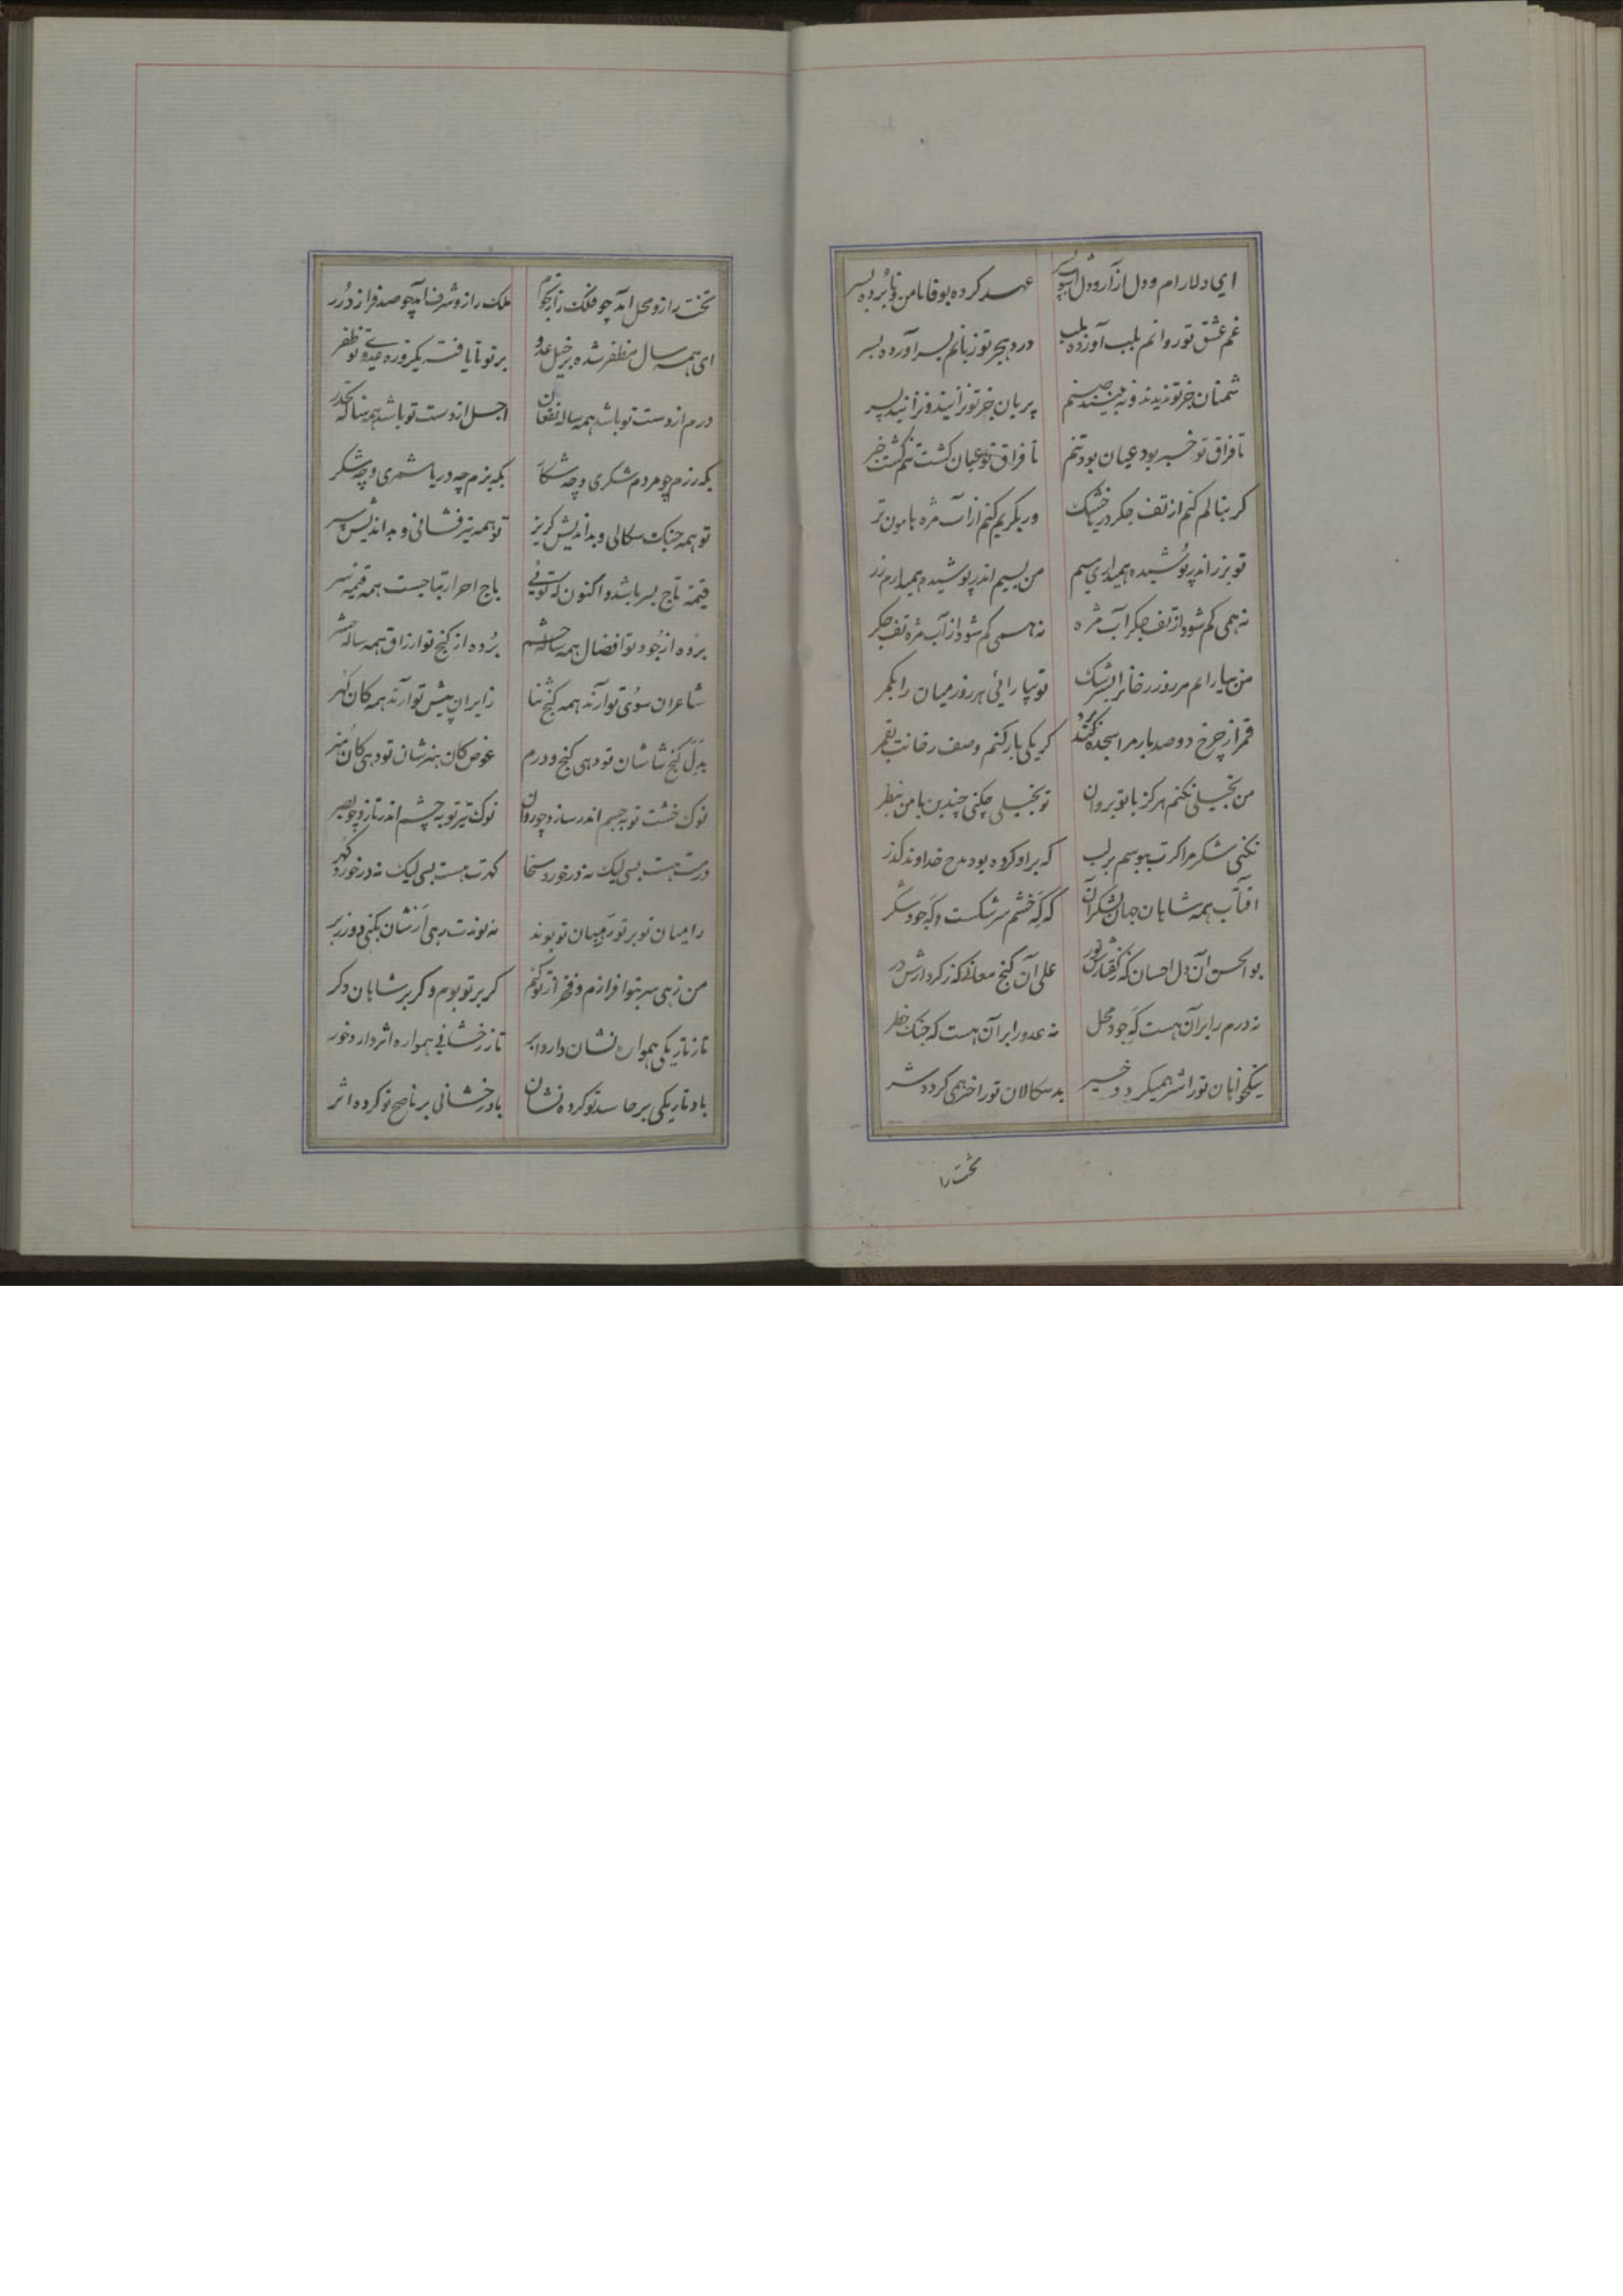 ای دلارام و دل ازار و دل اشوب پسر عهد کرده بوفا با من و نابرده بسر
غم عشق تو روانم بلب آورده بلب درد هجر تو زبانم بسر آورده بسر
شمنان جز تو ندیدند و نه بینند صنم پریان جز تو نزایند و نزانید پسر
تا فراق تو خبر بود عیان بود تنم تا فراق تو عیان کشت تنم کشت خبر
کر بنالم کنم از تف جکر دریا خشک ور بکریم کنم از آب مژه هامون تر
تو بزر اندر پوشیده همیداری سیم من بسیم اندر پوشیده همیدارم زر
نه همی کم شود از تف جکر آب مژه نه همی کم شود از آب مژه تف جکر
من بیارایم هر روز رخانرا بسرشک تو بیارائی هر روز میان را بکمر
قمر از چرخ دو صد بار مرا سجده کند کر یکی بار کنم وصف رخانت بقمر
من بخیلی نکنم هرکز با تو بروان تو بخیلی چکنی چندین با من بنظر
نکنی شکر مرا کرت ببوسم بر لب که بر او کرده بود مدح خداوند کذر
افتاب همه شاهان جهان لشکران که که خشم سر شکست و که جود شکر
بو الحسن آن دل احسان که ز کفتارش نور علی آن کنج معانی که ز کردارش در
نه درم را بر آن هست که جود محل نه عدو را بر آن هست که جنک خطر
نیکخواهان تو را شر همیکردد خیر بد سکالان تو را خیر همی کردد شر
تخت را
تخت را زو محل آمد چو فلک را ز نجوم ملک را زو شرف آمد چو صدف را ز درر
ای همه سال مظفر شده بر خیل عدو بر تو نایافته یکروزه عدوی تو ظفر
درم از دست تو باشد همه ساله بفغان اجل از دست تو باشد همه ساله بحذر
بکه رزم چو مردم شکری و چه شکار بکه بزم چه دریا شمری و چه شمر
تو همه جنک سکالی و بداندیش کریز تو همه تیر فشانی و بداندیش سپر
قیمة تاج بسر باشد و اکنون که توئی تاج احرار بتاجیست همه قیمة سر
برده از جود تو افضال همه ساله حشم برده از کنج تو ارزاق همه ساله حشر
شاعران سوی تو آرند همه کنج ثنا زایران پیش تو آرند همه کان کهر
بدل کنج ثناشان تو دهی کنج و درم عوض کان هنرشان تو دهی کان هنر
نوک خشت تو بجسم اندر سازد چو روان نوک تیر تو بچشم اندر تازد چو بصر
درمت هست بسی لیک نه در خورد سخا کهرت هست بسی لیک نه در خورد کهر
رامیان تو بر تو رهیان تو بوند نه نوندت رهی ار شان بکنی دوز زبر
من زهی سر بتو افرازم و فخر از تو کنم کر بر تو بوم و کر بر شاهان دکر
تا ز تاریکی همواره نشان دارد ابر تا ز رخشانی همواره اثر دارد خور
باد تاریکی بر حاسد تو کرده نشان باد رخشانی بر ناصح تو کرده اثر